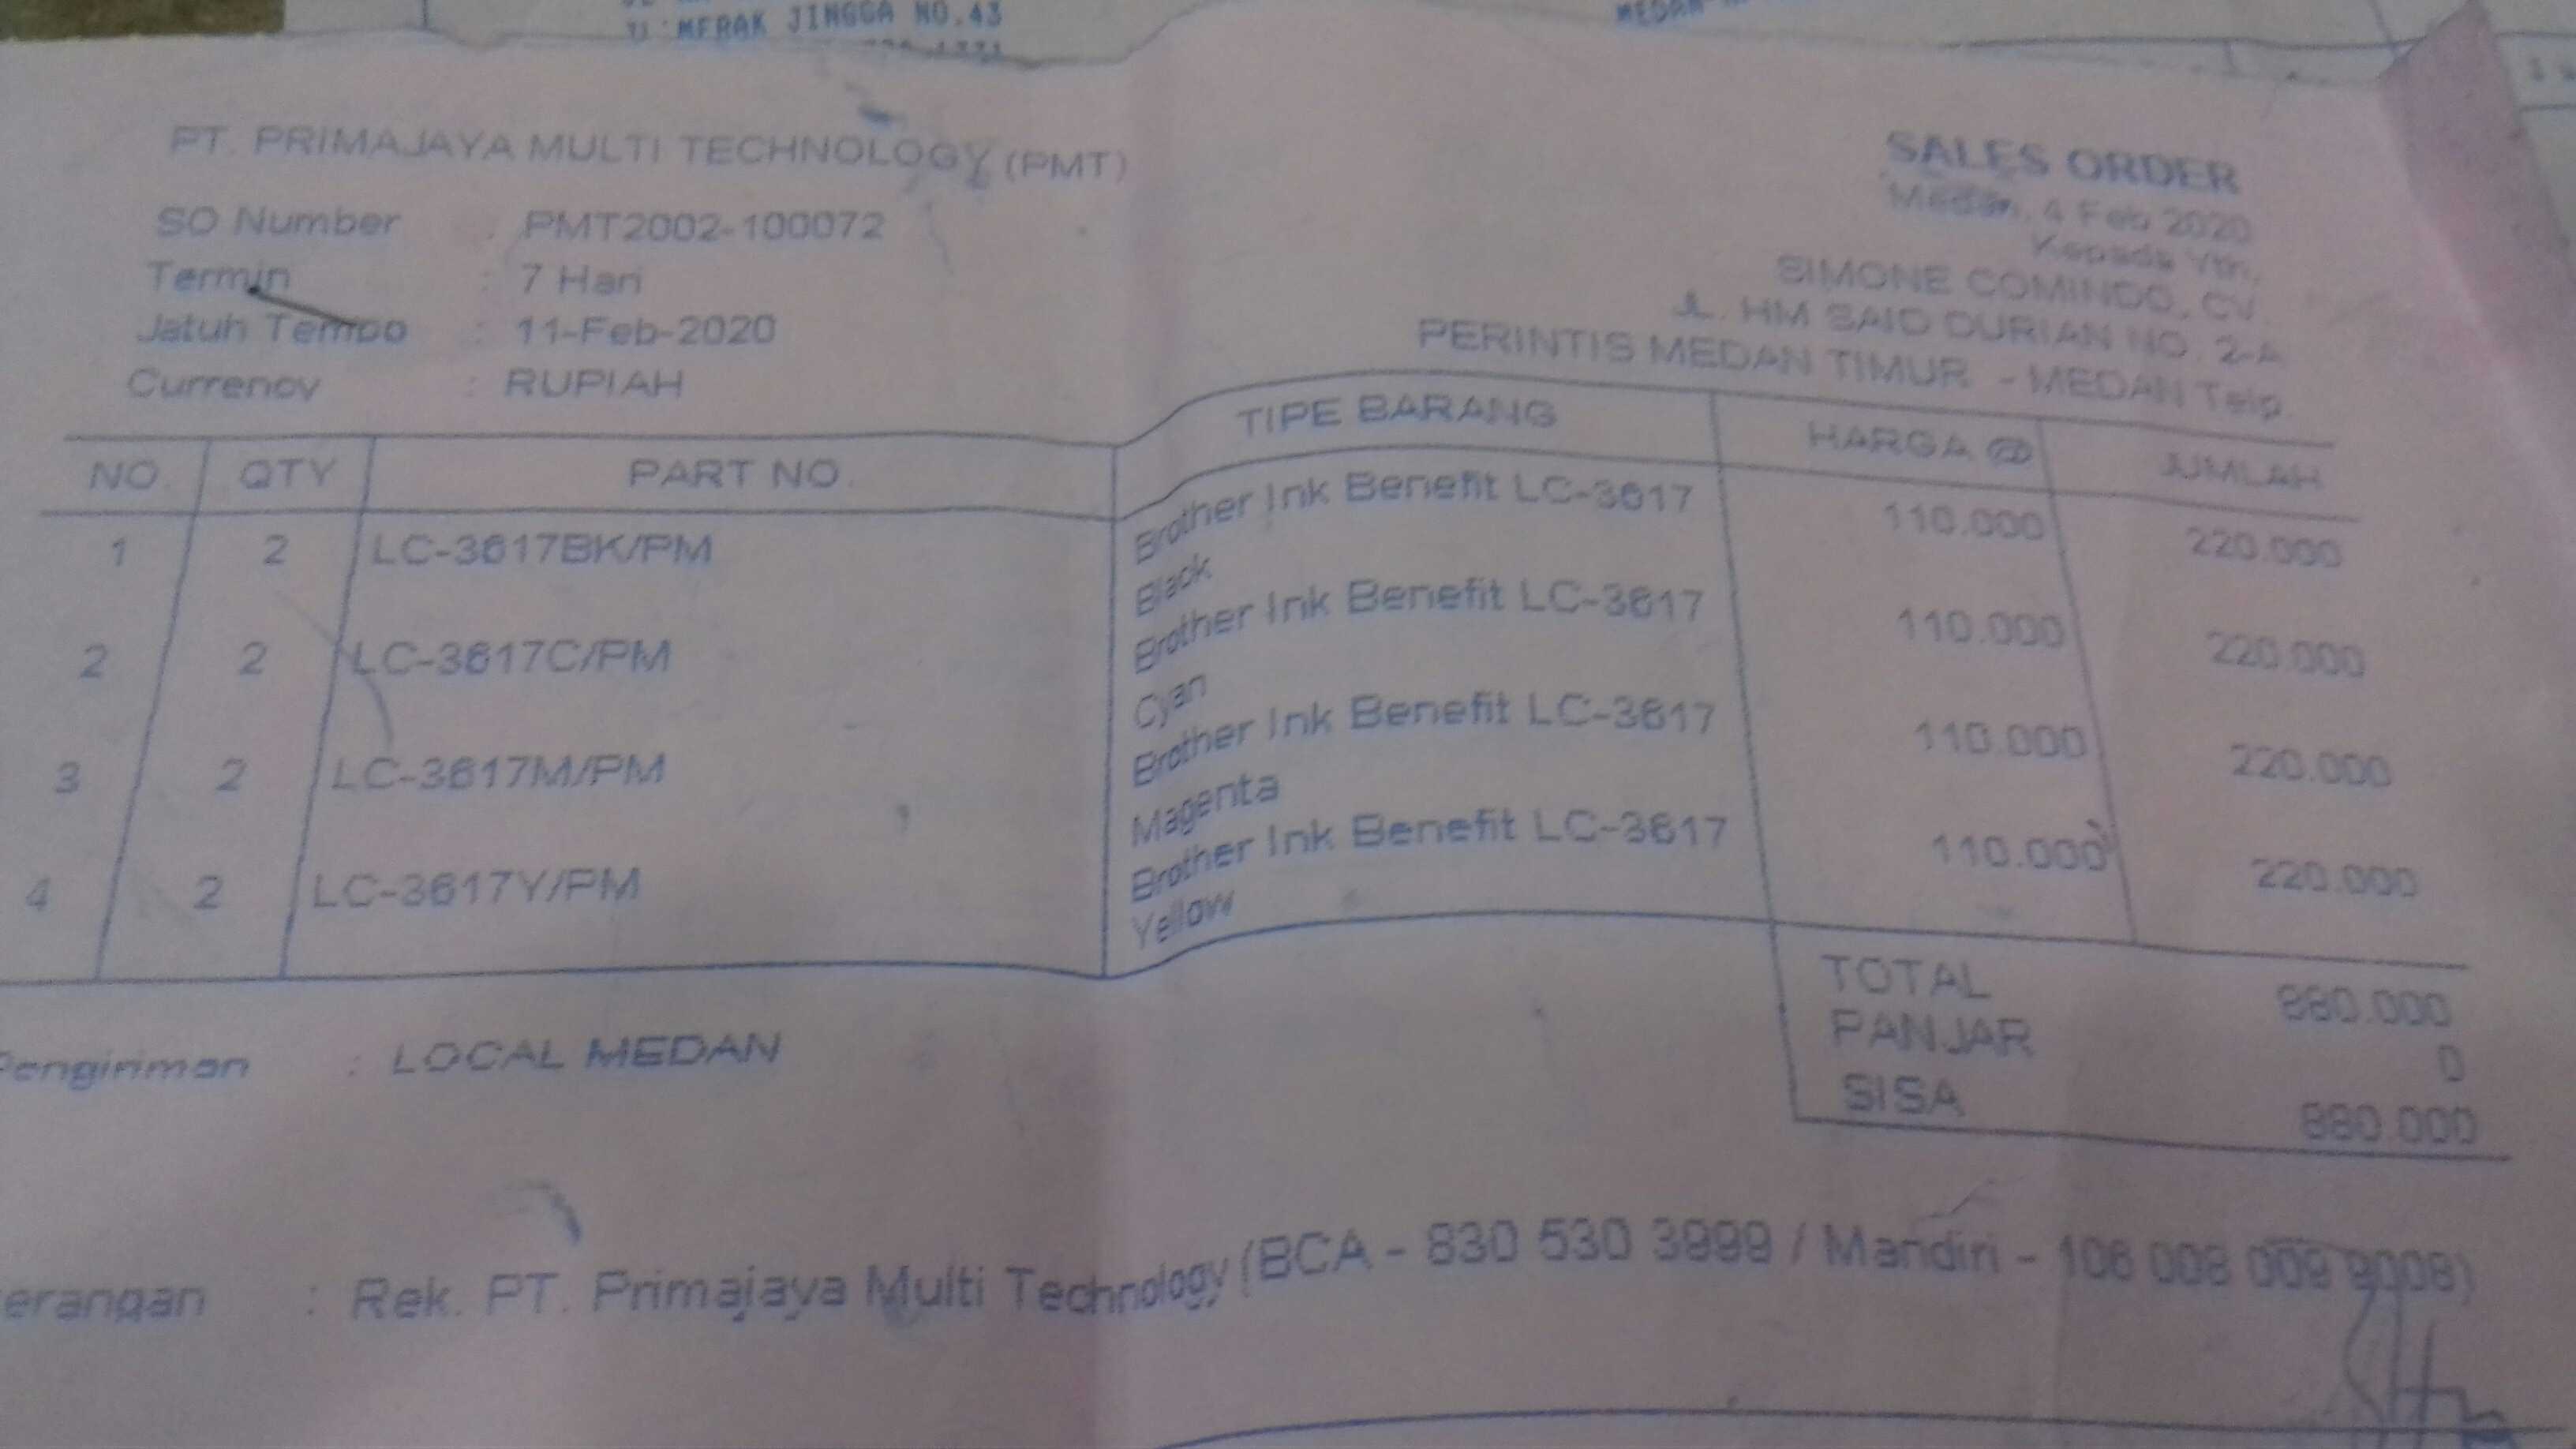 MERAK JINGGA NO.43
MEDAN
PT. PRIMAJAYA MULTI TECHNOLOGY (PMT)
SALES ORDER
SO Number : PMT2002-100072
Medan, 4 Feb 2020
Termin : 7 Hari
Kepada Yth,
Jatuh Tempo : 11-Feb-2020
SIMONE COMINDO, CV.
Currency : RUPIAH
JL. HM SAID DURIAN NO. 2-A
PERINTIS MEDAN TIMUR - MEDAN Telp
NO. QTY PART NO. TIPE BARANG HARGA @ JUMLAH
1 2 LC-3617BK/PM Brother Ink Benefit LC-3617 110.000 220.000
Black
2 2 LC-3617C/PM Brother Ink Benefit LC-3617 110.000 220.000
Cyan
3 2 LC-3617M/PM Brother Ink Benefit LC-3617 110.000 220.000
Magenta
4 2 LC-3617Y/PM Brother Ink Benefit LC-3617 110.000 220.000
Yellow
TOTAL 880.000
PANJAR 0
SISA 880.000
Pengiriman : LOCAL MEDAN
erangan : Rek. PT. Primajaya Multi Technology (BCA - 830 530 3999 / Mandiri - 106 008 009 9008)